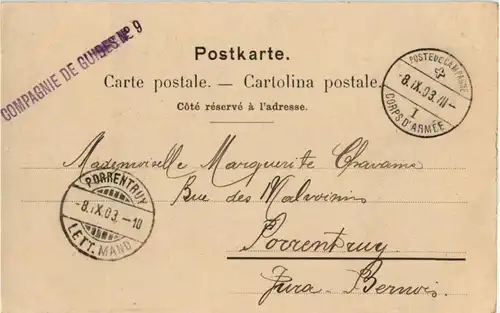 COMPAGNIE DE GUIDES Nº 9
Postkarte.
Carte postale. — Cartolina postale.
Côté réservé à l'adresse.
POSTE DE CAMPAGNE
-8.IX.03.III-
I
CORPS D'ARMÉE
Mademoiselle Marguerite Chavanne
Rue des Malvoisins
Porrentruy
Jura-Bernois
PORRENTRUY
-8.IX.03.-10
LETT. MAND